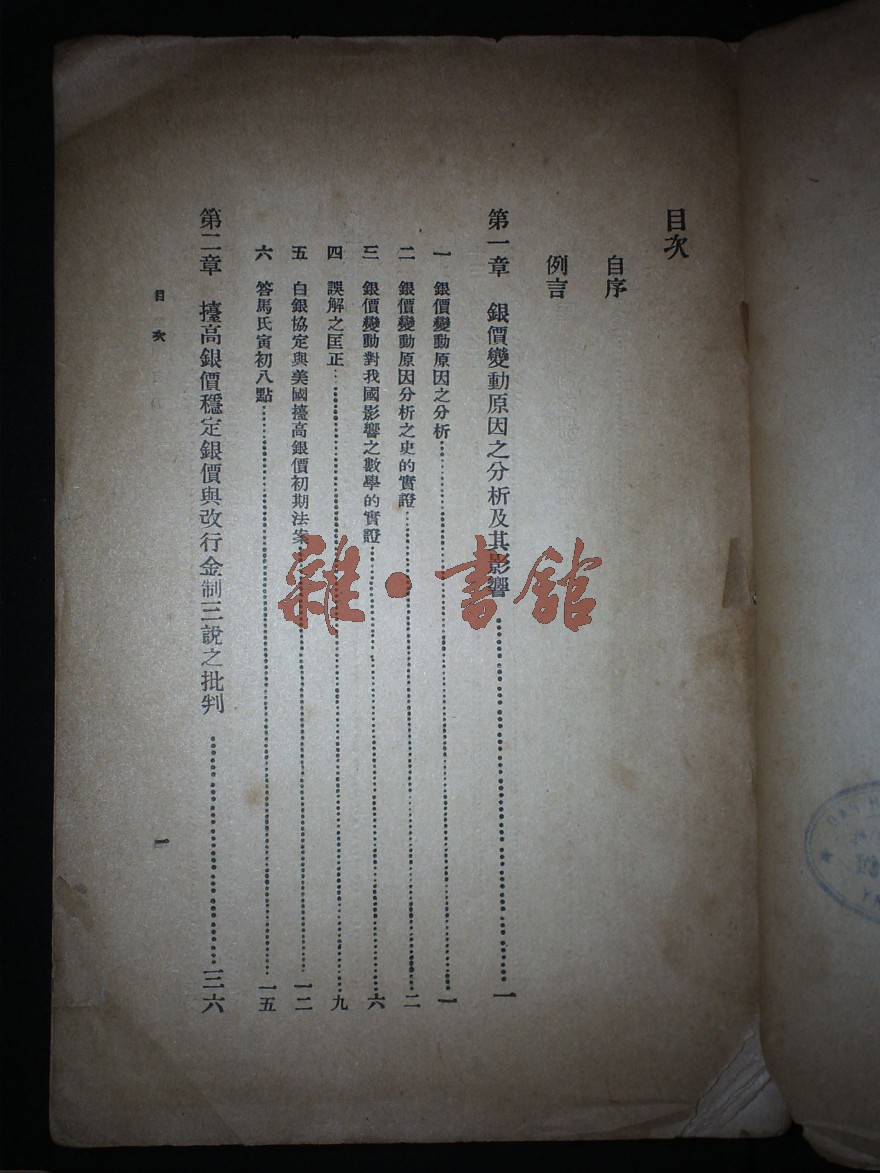 目次
自序
例言
第一章 銀價變動原因之分析及其影響……一
一 銀價變動原因之分析……一
二 銀價變動原因分析之史的實證……二
三 銀價變動對我國影響之數學的實證……六
四 誤解之匡正……九
五 白銀協定與美國擡高銀價初期法案……一二
六 答馬氏寅初八點……一五
第二章 擡高銀價穩定銀價與改行金制三說之批判……三六
目次
一
雜·書館